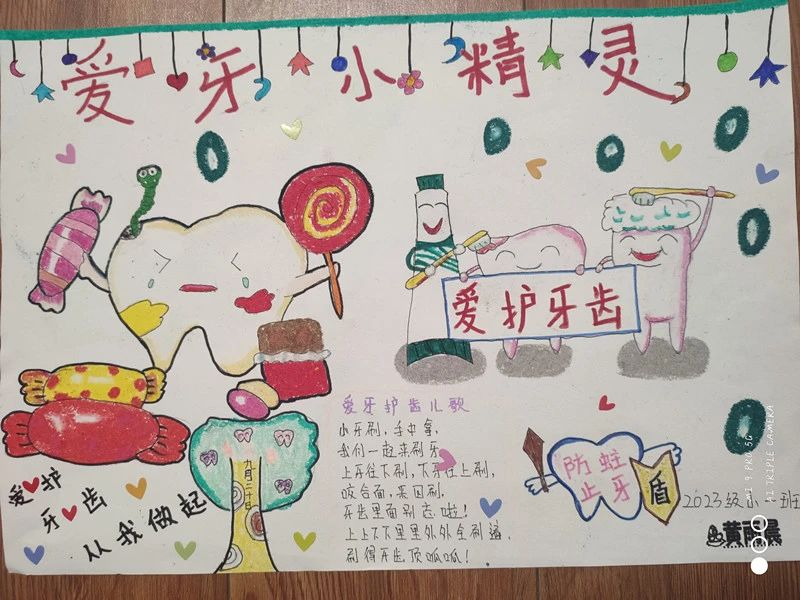 爱牙小精灵
爱护牙齿
爱牙护齿儿歌
小牙刷，手中拿，
我们一起来刷牙
上牙往下刷，下牙往上刷，
咬合面，来回刷，
牙齿里面别忘啦！
上上下下里里外外全刷遍，
刷得牙齿顶呱呱！
爱护
牙齿
从我做起
九月二十日
防蛀
止牙
盾
2023级小一班
MI 9 PRO 5G
MI TRIPLE CAMERA